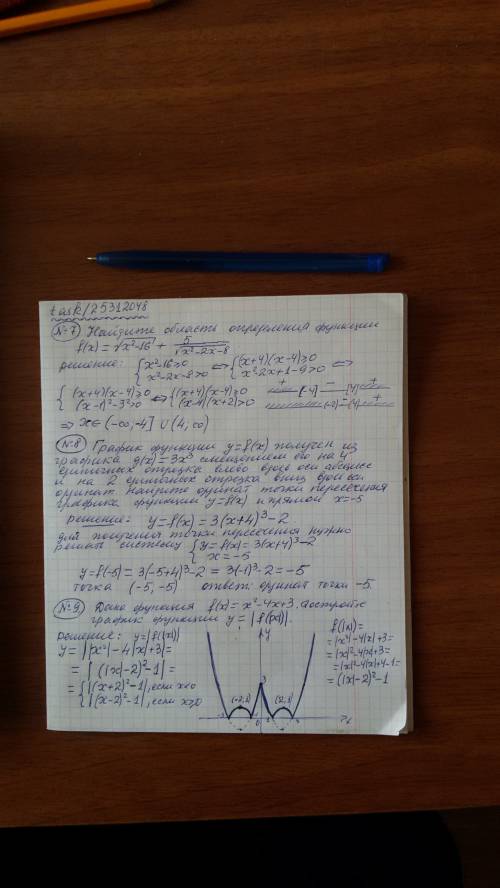 task/25312048
№7 Найдите область определения функции
f(x) = √x²-16 + 5/√x²-2x-8
решение: { x²-16≥0 x²-2x-8>0 ⇔ { (x+4)(x-4)≥0 x²-2x+1-9>0 ⇔
{ (x+4)(x-4)≥0 (x-1)²-3²>0 ⇔ { (x+4)(x-4)≥0 (x-4)(x+2)>0
⇒ x∈(-∞,-4] ∪ (4,∞)
№8 График функции y=f(x) получен из
графика g(x)=3x³ смещением его на 4
единичных отрезка влево вдоль оси абсцисс
и на 2 единичных отрезка вниз вдоль оси
ординат. Найдите ординат точки пересечения
графика функции y=f(x) и прямой x=-5
Решение: y=f(x) = 3(x+4)³-2
для получения точки пересечения нужно
решить систему { y=f(x)=3(x+4)³-2 x=-5
y=f(-5) = 3(-5+4)³-2 = 3(-1)³-2 = -5
точка (-5,-5) ответ: ординат точки -5.
№9 Дана функция f(x)=x²-4x+3. Постройте
график функции y=|f(|x|)|.
Решение: y=|f(|x|)|
y = ||x²|-4|x|+3|=
= |(|x|-2)²-1|=
= { |(x+2)²-1|, если x<0 |(x-2)²-1|, если x≥0
y
3
0
x
f(|x|)=
=|x²|-4|x|+3=
=|x|²-4|x|+3=
=|x|²-4|x|+4-1=
=(|x|-2)²-1